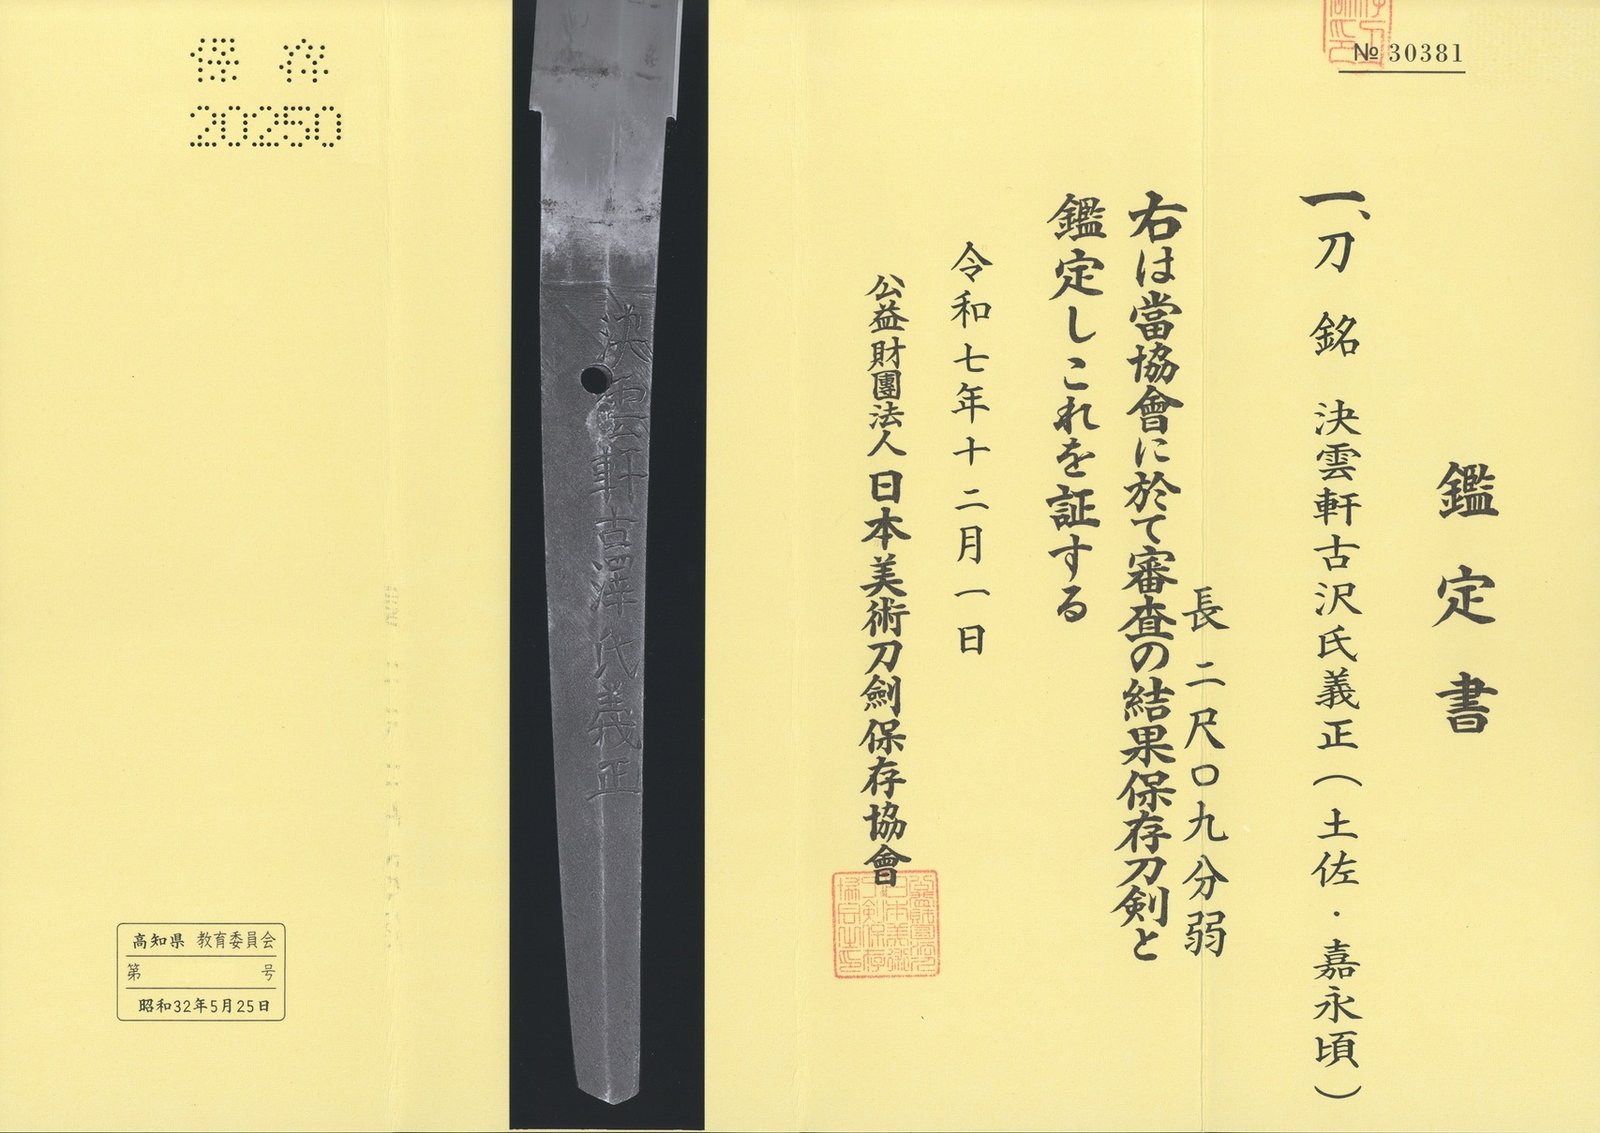 № 30381
鑑定書
一、刀 銘 決雲軒古沢氏義正(土佐・嘉永頃)
長 二尺〇九分弱
右は當協會に於て審査の結果保存刀剣と
鑑定しこれを証する
令和七年十二月一日
公益財團法人 日本美術刀劍保存協會
決雲軒古澤氏義正
保存
20250
高知県 教育委員会
第 号
昭和32年5月25日